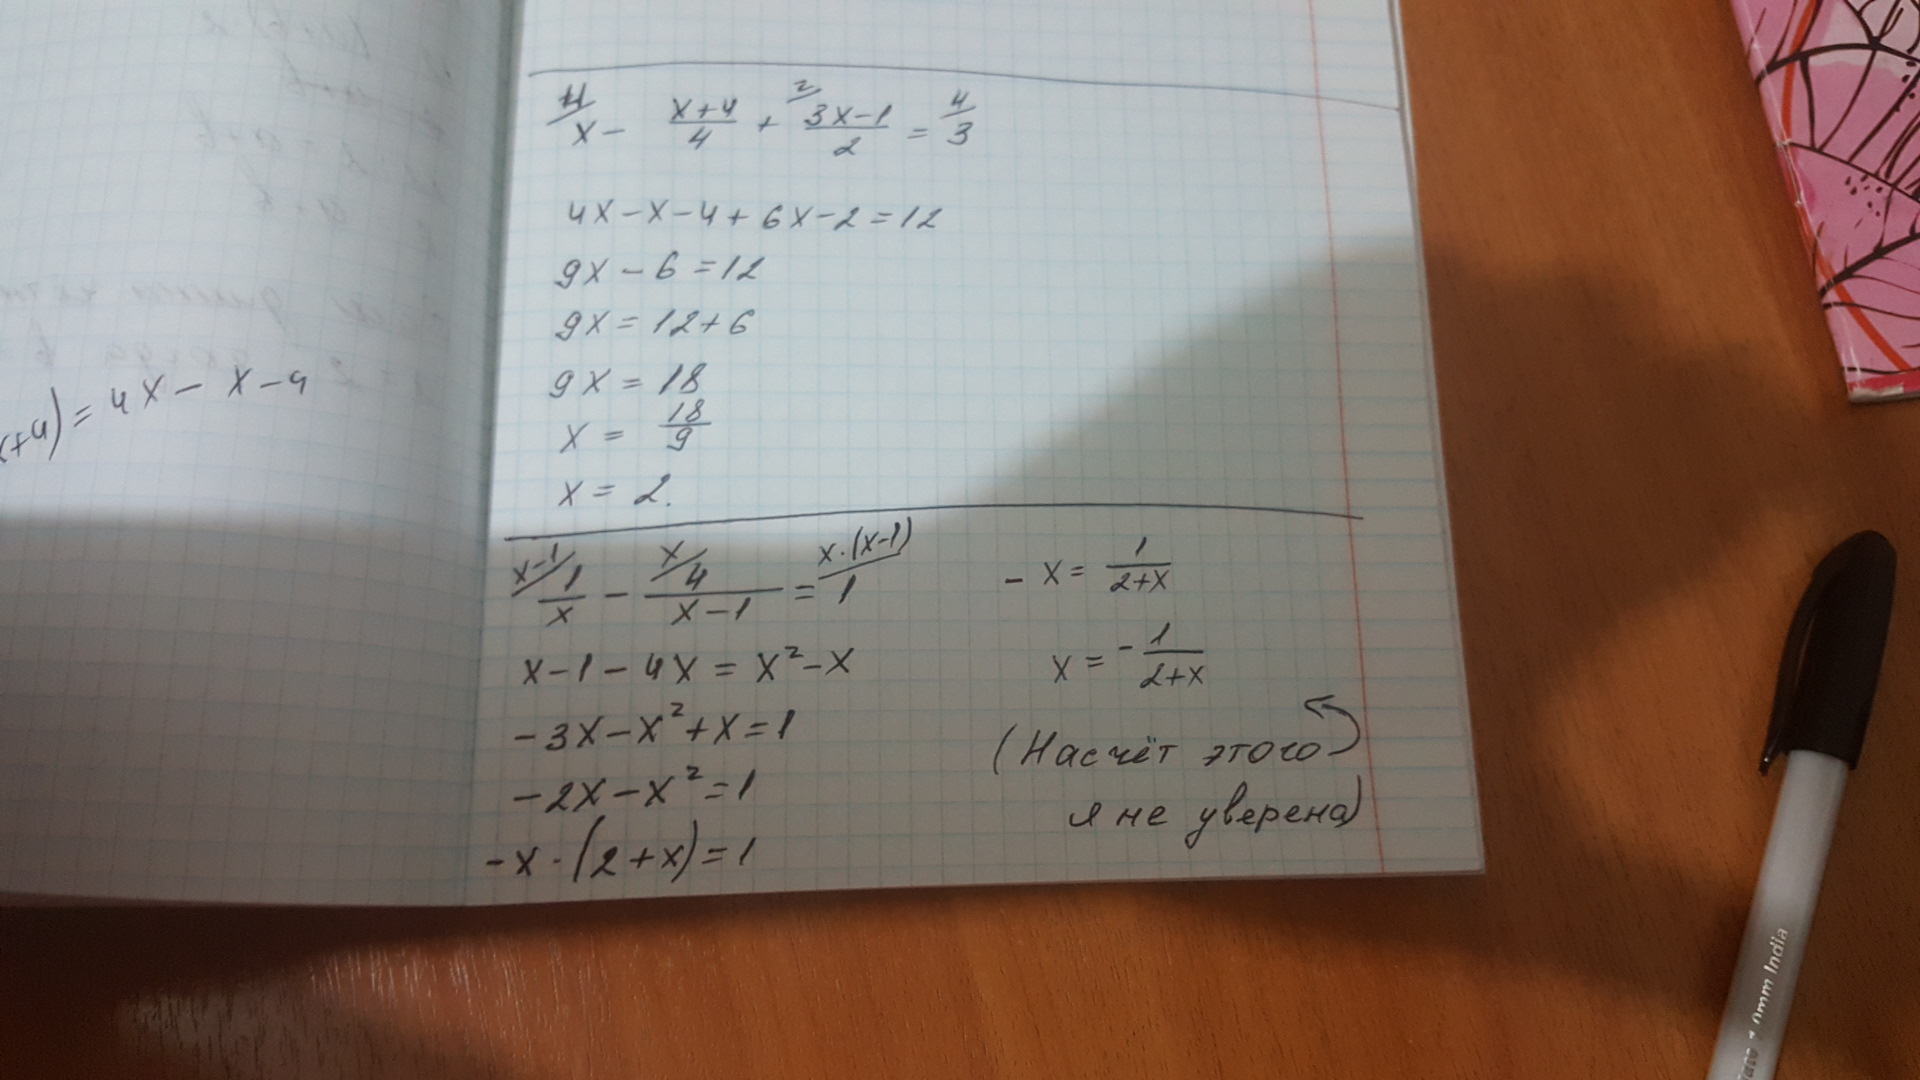 4/ x - (x+4)/4 + 2/ (3x-1)/2 = 4/ 3
4x-x-4+6x-2=12
9x-6=12
9x=12+6
9x=18
x = 18/9
x = 2.
x-1/ 1/x - x/ 4/(x-1) = x·(x-1)/ 1
x-1-4x = x²-x
-3x-x²+x=1
-2x-x²=1
-x·(2+x)=1
- x = 1/(2+x)
x = - 1/(2+x)
(Насчёт этого
я не уверена)
x+4) = 4x - x-4
0mm India